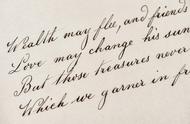 Wealth may flee, and friends
Love may change his sun
But those treasures never
Which we garner in